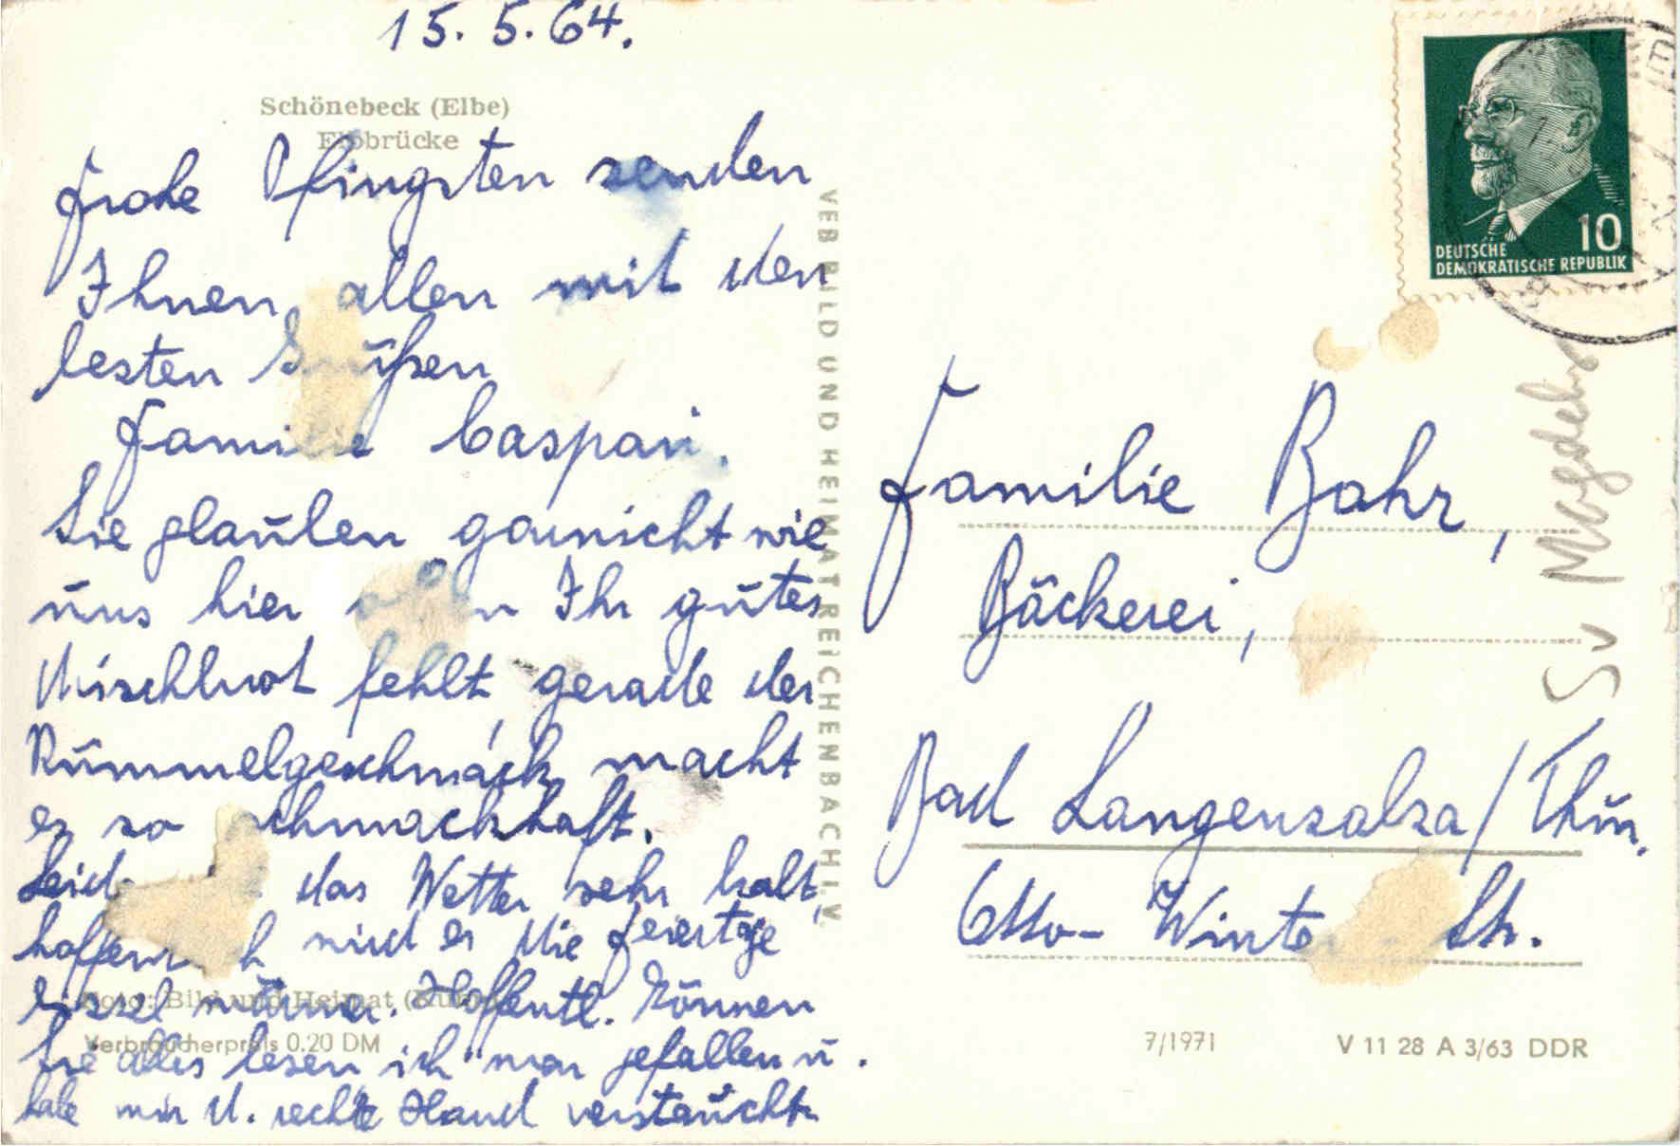 15. 5. 64.
Schönebeck (Elbe)
Elbbrücke
Frohe Pfingsten senden
Ihnen allen mit den
besten Grüßen
Familie Caspari.
Sie glauben garnicht wie
uns hier allen Ihr gutes
Mischbrot fehlt, gerade der
Kümmelgeschmack macht
es so schmackhaft.
das Wetter sehr kalt,
hoffentlich wird es die Feiertage
bissel wärmer. Hoffentl. können
Sie alles lesen ich war gefallen u.
habe mir d. rechte Hand verstaucht
Foto: Bild und Heimat
Verbraucherpreis 0.20 DM
VEB BILD UND HEIMAT REICHENBACH I. V.
10
DEUTSCHE
DEMOKRATISCHE REPUBLIK
Familie Bahr,
Bäckerei,
Bad Langensalza/Thür.
Otto-Winter-Str.
7/1971
V 11 28 A 3/63 DDR
SV Magdebg